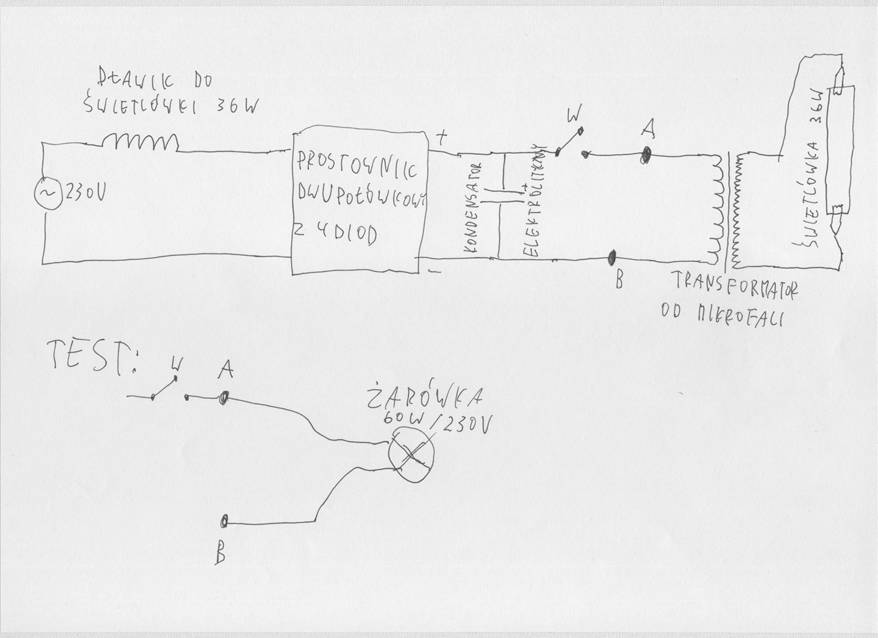 DŁAWIK DO
ŚWIETLÓWKI 36W
~ 230V
PROSTOWNIK
DWUPOŁÓWKOWY
Z 4 DIOD
+
-
KONDENSATOR
+
ELEKTROLITYCZNY
W
A
B
TRANSFORMATOR
OD MIKROFALI
ŚWIETLÓWKA 36W
TEST:
W
A
B
ŻARÓWKA
60W/230V